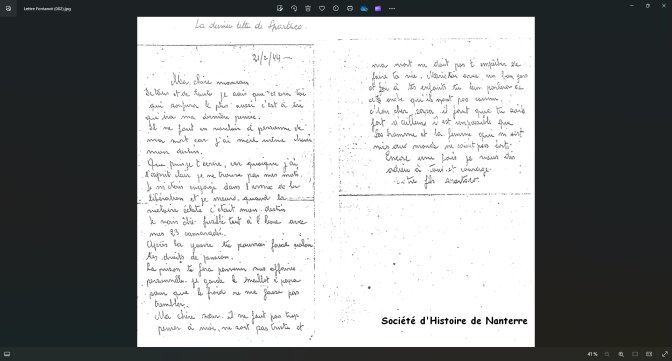 Lettre Fontanot (002).jpg
La dernière lettre de Spartaco
21/2/44
Ma chère maman
De tous et de toute je sais que c'est toi
qui souffrira le plus aussi c'est à toi
que ira ma dernière pensée.
Il ne faut en vouloir à personne de
ma mort car j'ai moi même choisi
mon destin.
Que puis-je t'écrire, car quoique j'ai
l'esprit clair je ne trouve pas mes mots.
Je m'étais engagé dans l'armée de la
libération et je meurs, quand la
victoire éclate c'était mon destin
Je vais être fusillé tout à l'heure avec
mes 23 camarades.
Après la guerre tu pourras faire valoir
tes droits de pension.
La prison te fera parvenir mes affaires
personnelles je garde le maillot à papa
pour que le froid ne me fasse pas
trembler.
Ma chère sœur il ne faut pas trop
penser à moi, ne sois pas triste et
ma mort ne doit pas t'empêcher de
faire ta vie. Marie toi avec un bon gars
et à tes enfants tu leur parleras de
cet oncle qu'ils n'ont pas connu.
Mon cher papa il faut que tu sois
fort d'ailleurs il est impossible que
les hommes et la femme qui m'ont
mis au monde ne soient pas forts.
Encore une fois je vous dis
adieu à Tous et courage.
Votre fils Spartaco
Société d'Histoire de Nanterre
41 %